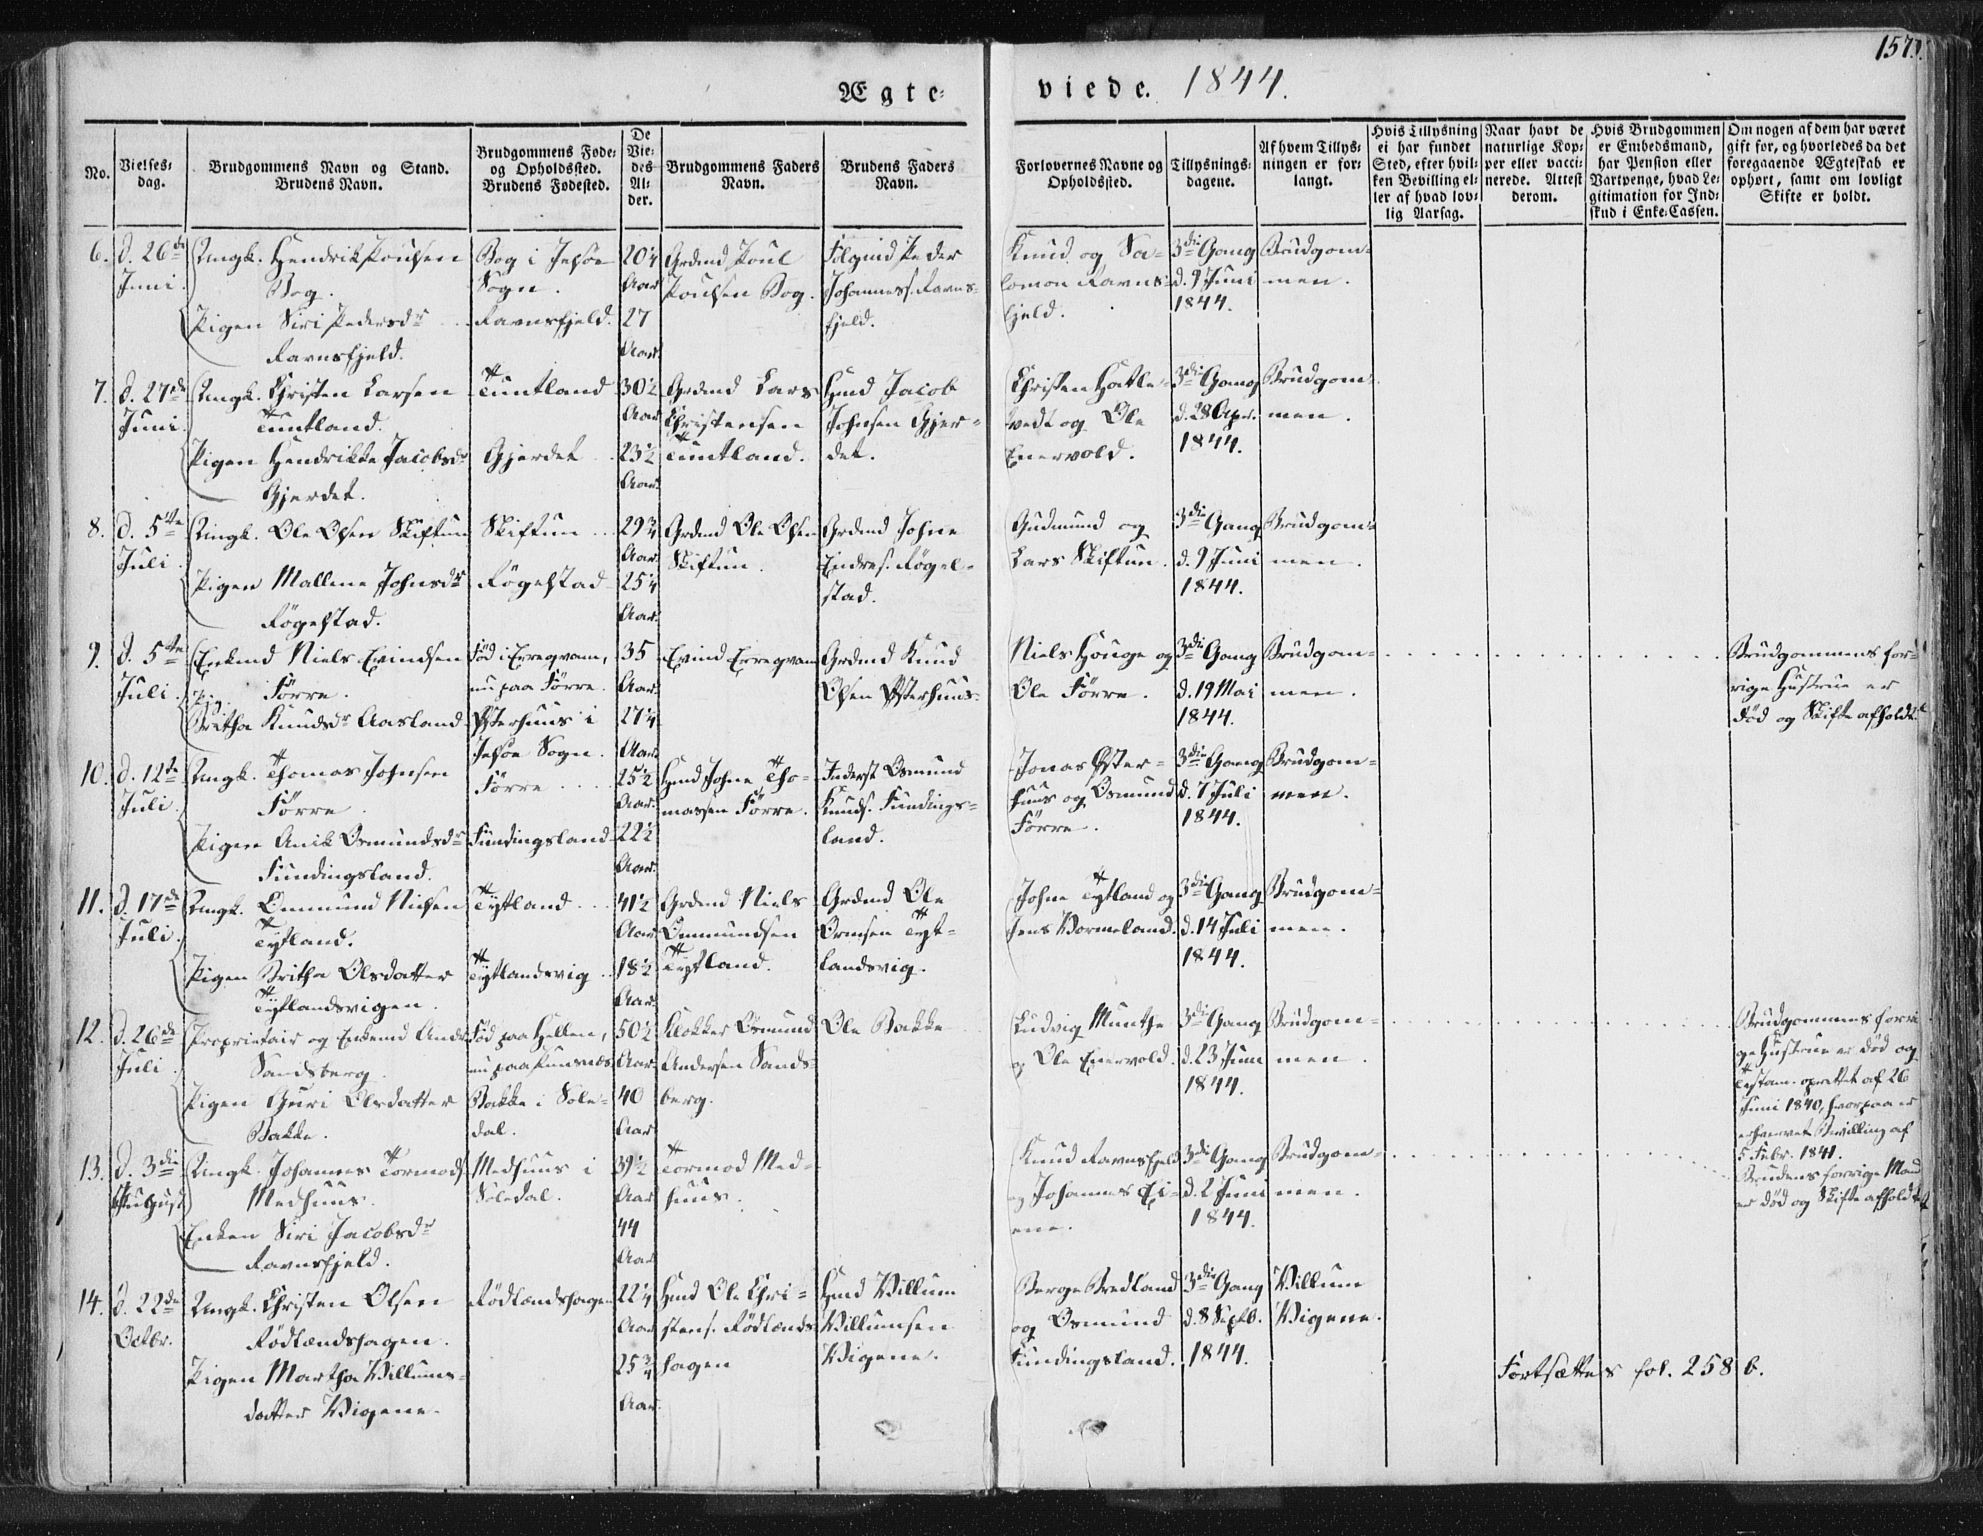 157.
Ægte-
viede. 1844.
No.
Vielses-
dag.
Brudgommens Navn og Stand.
Brudens Navn.
Brudgommens Føde-
og Opholdssted.
Brudens Fødested.
De
Vie-
des
Al-
der.
Brudgommens Faders
Navn.
Brudens Faders
Navn.
Forlovernes Navne og
Opholdssted.
Tillysnings-
dagene.
Af hvem Tillys-
ningen er for-
langt.
Hvis Tillysning
ei har fundet
Sted, efter hvil-
ken Bevilling el-
ler af hvad lov-
lig Aarsag.
Naar havt de
naturlige Kop-
per eller vacci-
nerede. Attest
derom.
Hvis Brudgommen
er Embedsmand,
har Pension eller
Vartpenge, hvad Le-
gitimation for Ind-
skud i Enke-Cassen.
Om nogen af dem har været
gift før, og hvorledes da det
foregaaende Ægteskab er
ophørt, samt om lovligt
Skifte er holdt.
6.
d. 26de
Juni.
Ungk. Hendrik Poulsen
Bog.
Pigen Siri Pedersdr
Ravnsfjeld.
Bog i Jelsøe
Sogn.
Ravnsfjeld.
20¼
Aar
27
Aar.
Grdmd Poul
Poulsen Bog.
Peder
Johanness. Ravns-
fjeld.
Knud og Sa-
lomon Ravns-
fjeld.
3die Gang
d. 9 Juni
1844.
Brudgom-
men.
7.
d. 27de
Juni.
Ungk. Christen Larsen
Tuntland.
Pigen Hendrikke Jacobsdr
Gjerdet.
Tuntland
Gjerdet
30½
Aar
23½
Aar.
Grdmd Lars
Christensen
Tuntland.
Hmd Jacob
Johnsen Gjer-
det.
Christen Hatle-
vedt og Ole
Enervold.
3die Gang
d. 28 Apr.
1844.
Brudgom-
men.
8.
d. 5te
Juli.
Ungk. Ole Olsen Skiftun
Pigen Mallene Johnsdr
Røgelstad.
Skiftun
Røgelstad
29¾
Aar.
25¼
Aar.
Grdmd Ole Olsen
Skiftun.
Grdmd Johne
Endres. Røgel-
stad.
Gudmund og
Lars Skiftun.
3die Gang
d. 9 Juni
1844.
Brudgom-
men.
9.
d. 5te
Juli.
Enkemd Niels Eivindsen
Førre.
Pig.
Britha Knudsdr Aasland
Fød i Erreqvam,
nu paa Førre.
Østerhuus i
Jelsøe Sogn.
35
Aar.
27¼
Aar.
Eivind Erreqvam
Grdmd Knud
Olsen Østerhuus.
Niels Houge og
Ole Førre.
3die Gang
d. 19 Mai
1844.
Brudgom-
men.
Brudgommens for-
rige Hustrue er
død og Skifte afholdt.
10.
d. 12te
Juli.
Ungk. Thomas Johnsen
Førre.
Pigen Anik Osmundsdr
Fundingsland.
Førre
Fundingsland
25½
Aar.
22½
Aar.
Hmd Johne Tho-
massen Førre.
Inderst Osmund
Knuds. Fundings-
land.
Jonas Øster-
huus og Osmund
Førre.
3die Gang
d. 7 Juli
1844.
Brudgom-
men.
11.
d. 17de
Juli.
Ungk. Ommund Nielsen
Tytland.
Pigen Britha Olsdatter
Tytlandsvigen.
Tytland
Tytlandsvig
41½
Aar
18½
Aar.
Grdmd Niels
Ommundsen
Tytland.
Grdmd Ole
Ormsen Tyt-
landsvig.
Johne Tytland og
Jens Vormeland.
3die Gang
d. 14 Juli
1844.
Brudgom-
men.
12.
d. 26de
Juli.
Proprietair og Enkemd Andr.
Sandsberg
Pigen Guri Olsdatter
Bakke.
Fød paa Hellen,
nu paa
Bakke i Søle-
dal.
50½
Aar.
40
Aar.
Klokker Osmund
Andersen Sands-
berg.
Ole Bakke
Ludvig Munthe
og Ole Enervold.
3die Gang
d. 23 Juni
1844.
Brudgom-
men.
Brudgommens forri-
ge Hustrue er død og
Testam. oprettet af 26
Juni 1840, hvorpaa er
erhvervet Bevilling af
5 Febr. 1841.
13.
d. 3die
August
Ungk. Johannes Tormods.
Medhuus.
Enken Siri Jacobsdr
Ravnsfjeld.
Medhuus i
Søledal.
39½
Aar
44
Aar
Tormod Med-
huus.
Knud Ravnsfjeld
og Johannes Ei-
ene.
3die Gang
d. 2 Juni
1844.
Brudgom-
men.
Brudens forrige Mand
er død og Skifte afholdt.
14.
d. 22de
Octbr.
Ungk. Christen Olsen
Rødlændshagen.
Pigen Martha Villums-
datter Vigene.
Rødlændshagen
22¼
Aar
25¾
Aar.
Hmd Ole Chri-
stens. Rødlænds-
hagen
Hmd Villum
Villumsen
Vigene.
Berge Bredland
og Osmund
Fundingsland.
3die Gang
d. 8 Septb.
1844.
Villum
Vigene.
Fortsættes fol. 258 b.